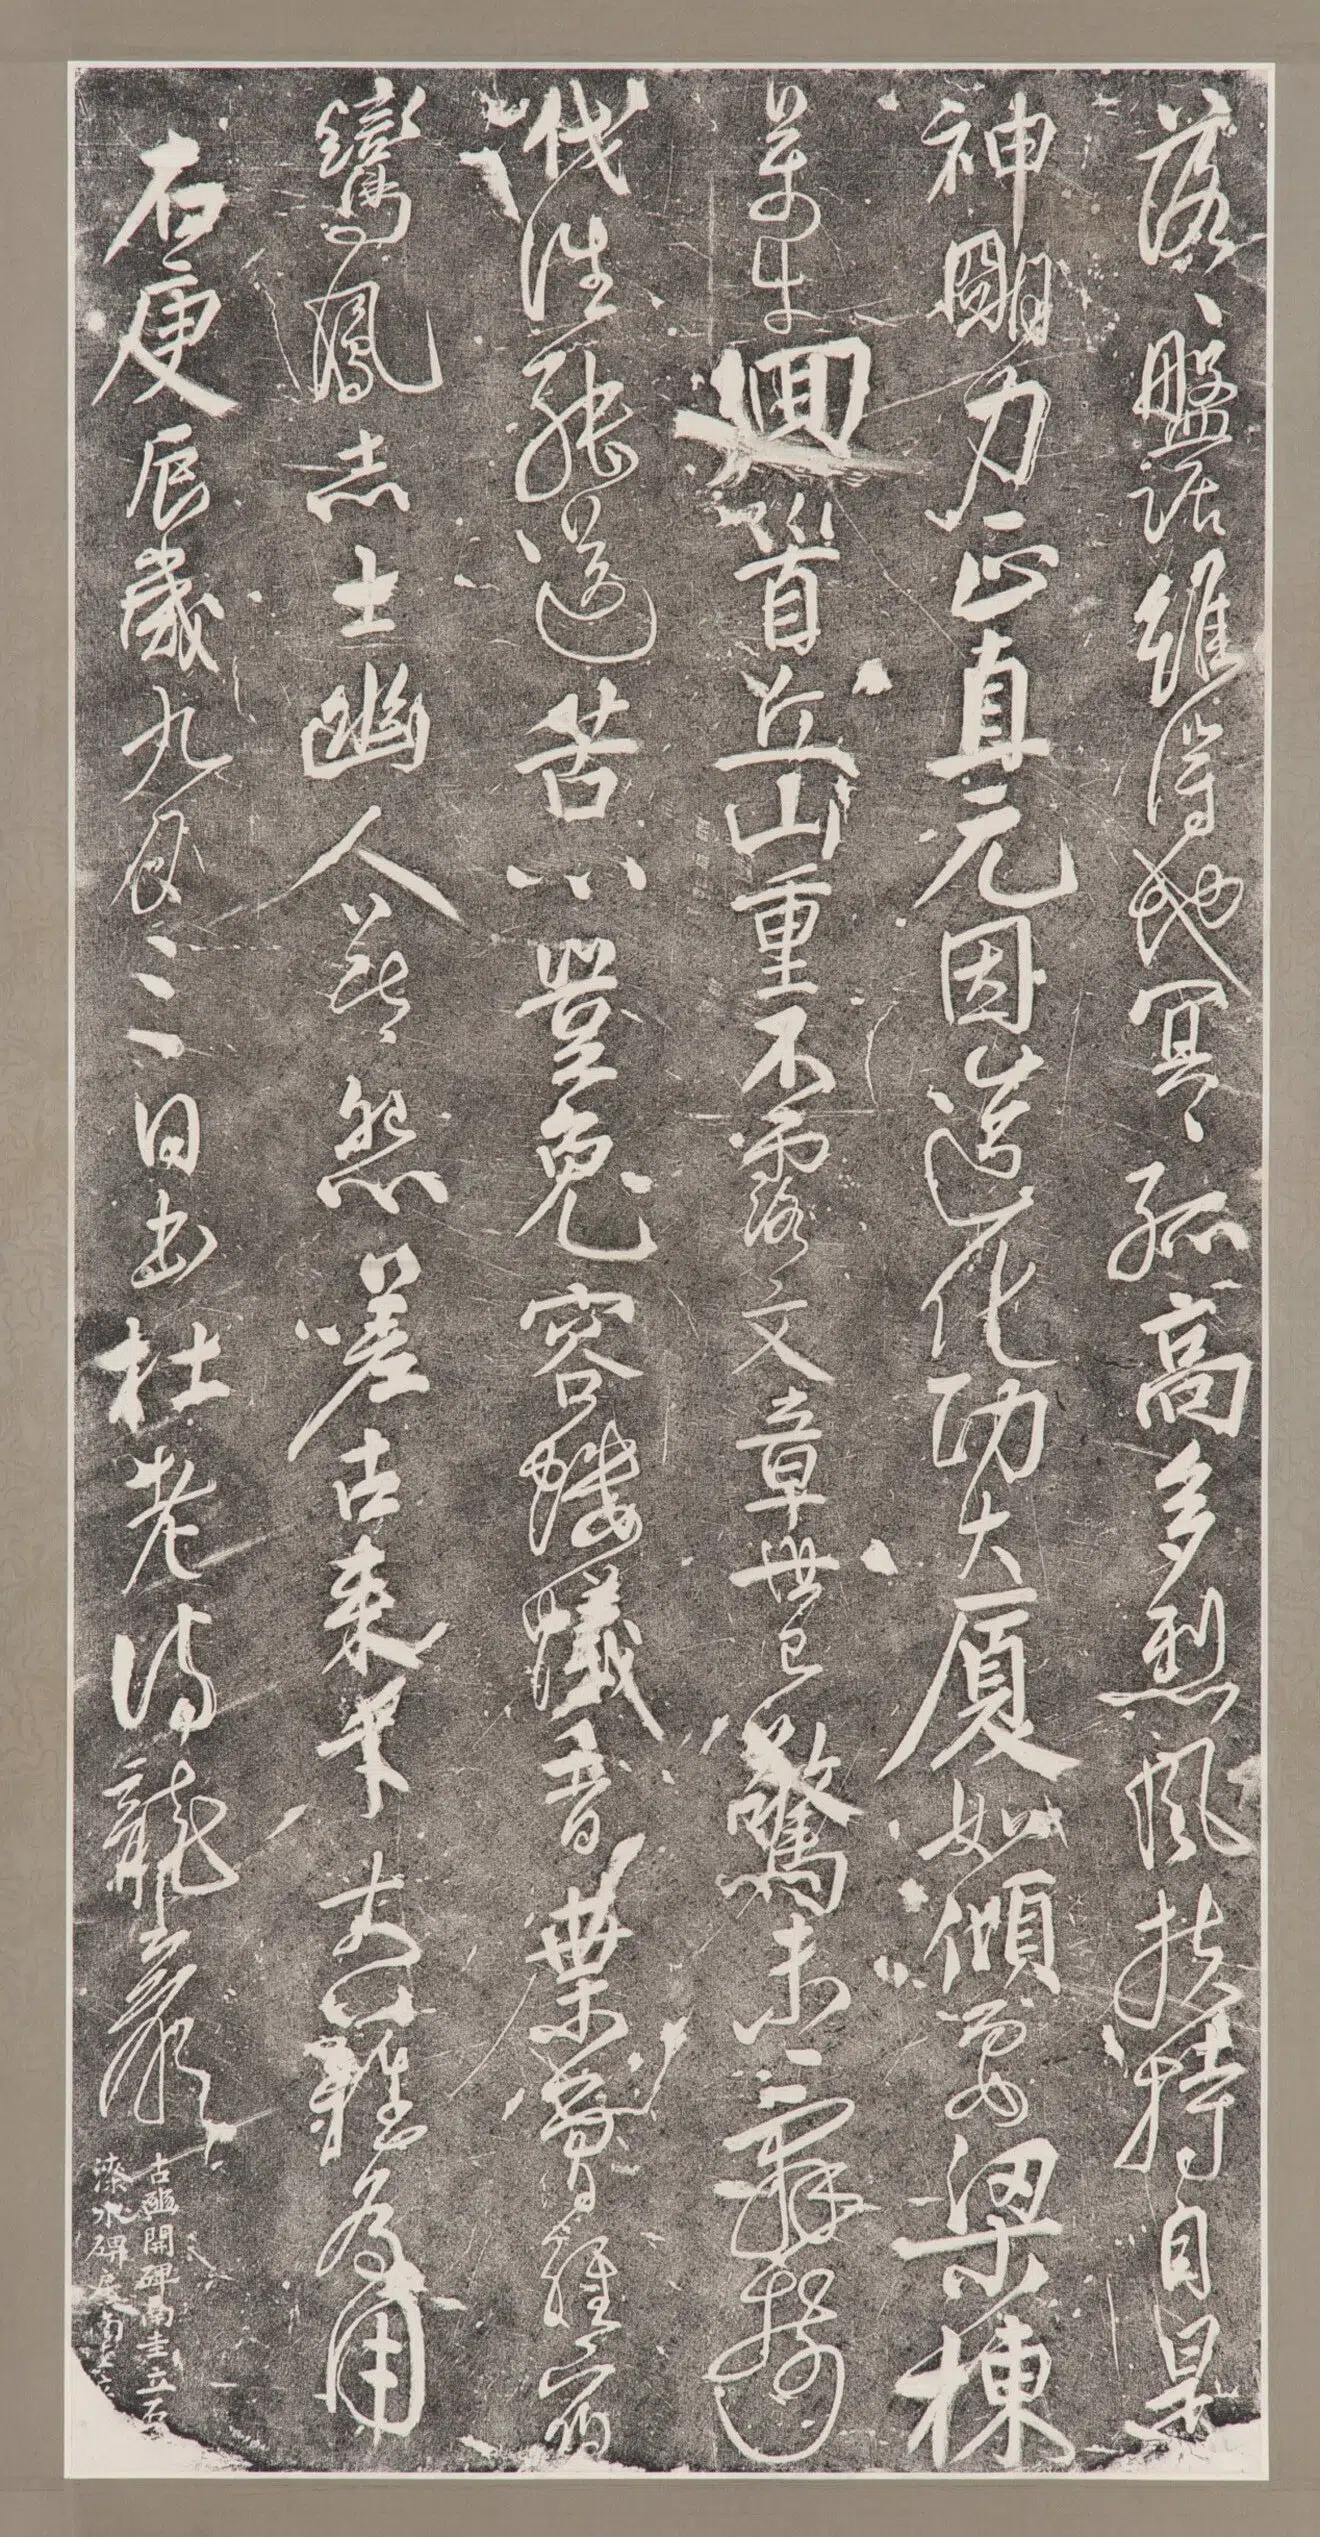 落〻盤踞雖得地冥〻孤高多烈風扶持自是
神朙力正直元因造化功大厦如傾要梁棟
萬牛迴首丘山重不露文章世已驚未辭翦
伐誰能送苦心豈免容螻蟻香葉曾經宿
鸞鳳志士幽人莫怨嗟古來材大難為用
右庚辰歲九月三日書杜老詩龍巖
古豳開碑南圭立石
漆水碑